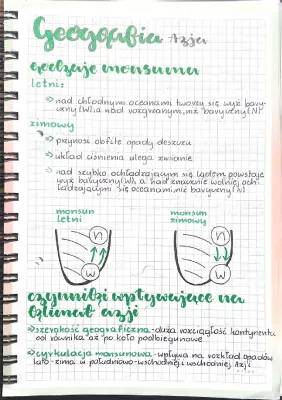 Geografia Azja
rodzaje monsunu
letni:
→ nad chłodnym oceanami tworzy się wyż bary-
czny (W), a nad rozgrzanym, niż baryczny (N)
zimowy
→ przynosi obfite opady deszczu
→ układ ciśnienia ulega zmianie
→ nad szybko ochładzającym się lądem powstaje
wyż baryczny (W), a nad znacznie wolniej och-
ładzającymi się oceanami niż baryczny (N)
monsun letni
monsun zimowy
N N
W W
czynniki wpływające na
klimat azji
→ szerokość geograficzna - duża rozciągłość kontynentu
od równika aż po koło podbiegunowe
→ cyrkulacja monsunowa - wpływa na rozkład opadów
lato-zima w południowo-wschodniej i wschodniej Azji